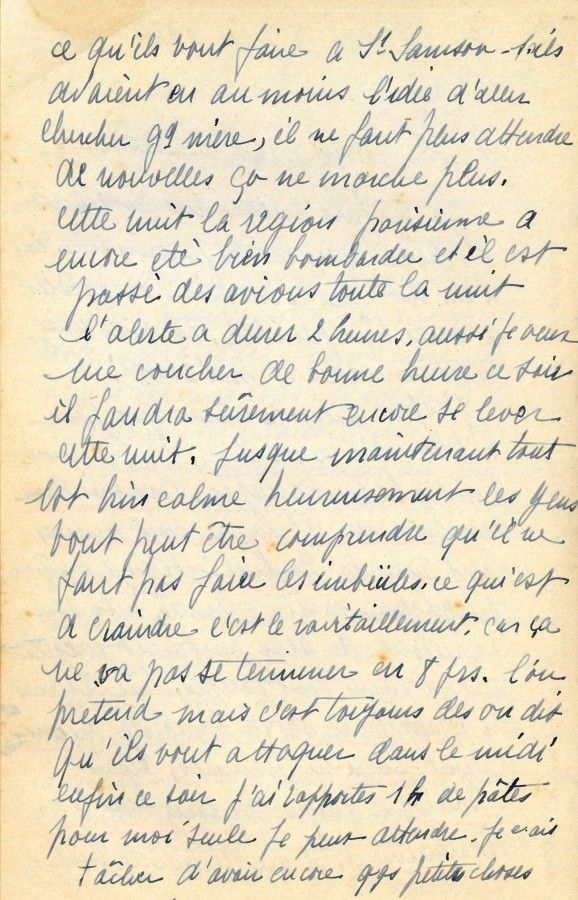 ce qu'ils vont faire a St Samson - s'ils
avaient eu au moins l'idée d'aller
chercher gd mère, il ne faut plus attendre
de nouvelles ça ne marche plus.
cette nuit la region parisienne a
encore eté bien bombardee et il est
passé des avions toute la nuit
l'alerte a durer 2 heures, aussi je veux
me coucher de bonne heure ce soir
il faudra sûrement encore se lever
cette nuit. Jusque maintenant tout
est bien calme heureusement les gens
vont peut être comprendre qu'il ne
faut pas faire les imbeciles. ce qui est
a craindre c'est le ravitaillement. car ça
ne va pas se terminer en 8 jrs. l'on
pretend mais c'est toujours des on dit
qu'ils vont attaquer dans le midi
enfin ce soir j'ai rapportes 1 k de pâtes
pour moi seule je peux attendre. je vais
tâcher d'avoir encore qqs petites choses